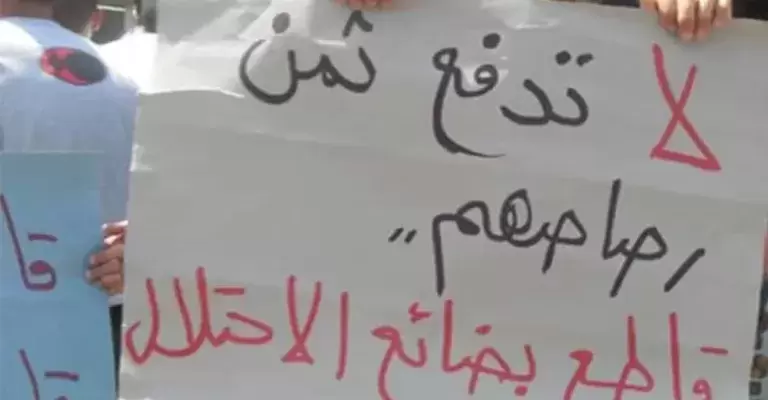 لا تدفع ثمن
رصاصهم,,
قاطع بضائع الاحتلال
قا
قا